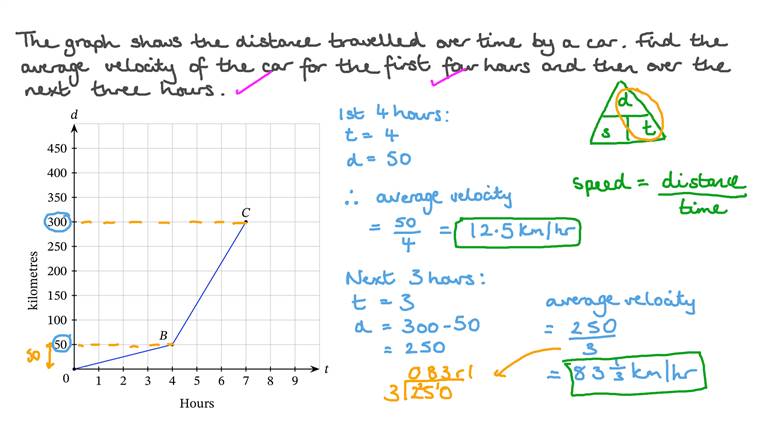 The graph shows the distance travelled over time by a car. Find the
average velocity of the car for the first four hours and then over the
next three hours.
d
450
400
350
300
250
200
150
100
50
0
1 2 3 4 5 6 7 8 9
t
kilometres
Hours
B
C
50
1st 4 hours:
t = 4
d = 50
∴ average velocity
= 50/4 = 12.5 km/hr
Next 3 hours:
t = 3
d = 300 - 50
= 250
083r1
3 2²5¹0
d
s t
speed = distance/time
average velocity
= 250/3
= 83 1/3 km/hr